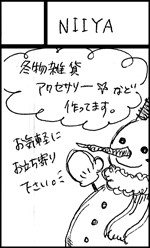 NIIYA
冬物雑貨
アクセサリー☆など
作ってます。
お気軽に
お立ち寄り
下さい。